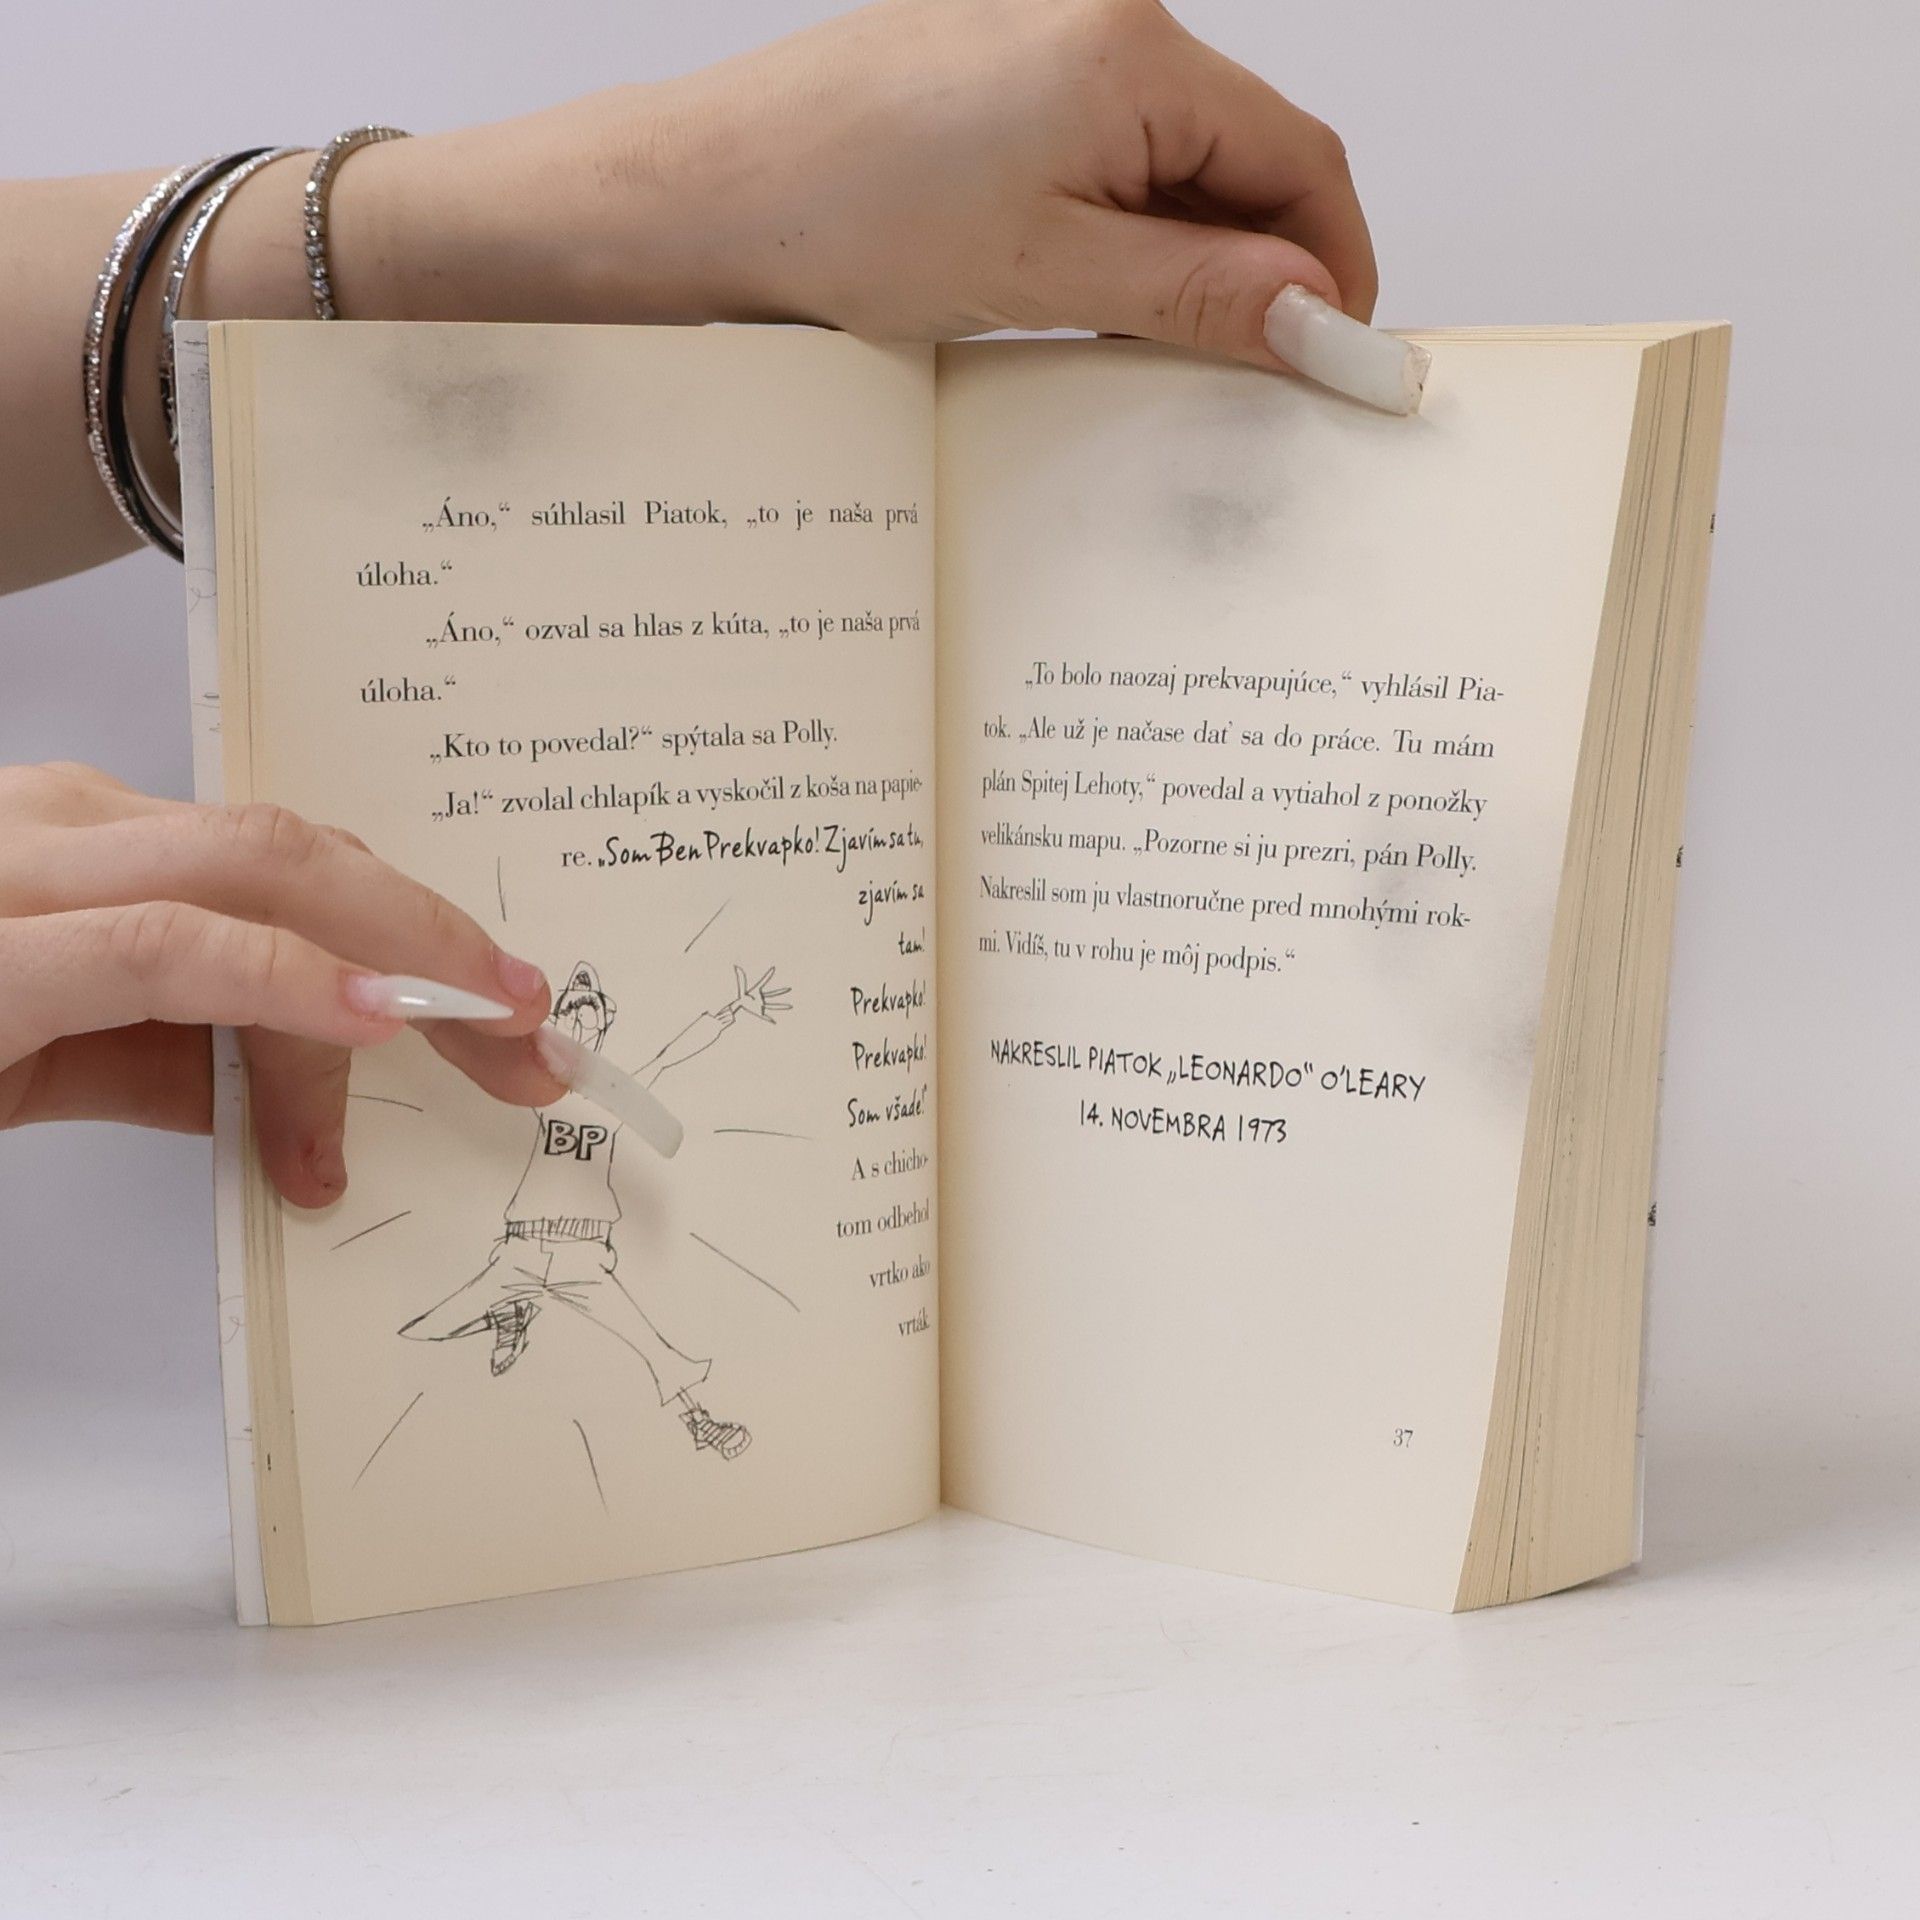 „Áno,“ súhlasil Piatok, „to je naša prvá
úloha.“
„Áno,“ ozval sa hlas z kúta, „to je naša prvá
úloha.“
„Kto to povedal?“ spýtala sa Polly.
„Ja!“ zvolal chlapík a vyskočil z koša na papie-
re. „Som Ben Prekvapko! Zjavím sa tu,
zjavím sa
tam!
Prekvapko!
Prekvapko!
Som všade!“
A s chicho-
tom odbehol
vrtko ako
vrták.
BP
„To bolo naozaj prekvapujúce,“ vyhlásil Pia-
tok. „Ale už je načase dať sa do práce. Tu mám
plán Spitej Lehoty,“ povedal a vytiahol z ponožky
velikánsku mapu. „Pozorne si ju prezri, pán Polly.
Nakreslil som ju vlastnoručne pred mnohými rok-
mi. Vidíš, tu v rohu je môj podpis.“
NAKRESLIL PIATOK „LEONARDO“ O'LEARY
14. NOVEMBRA 1973
37